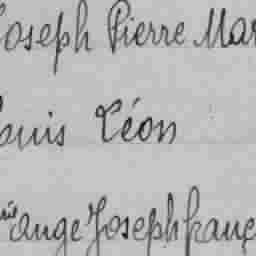 Joseph Pierre Mar
Louis Léon
ange Joseph franç